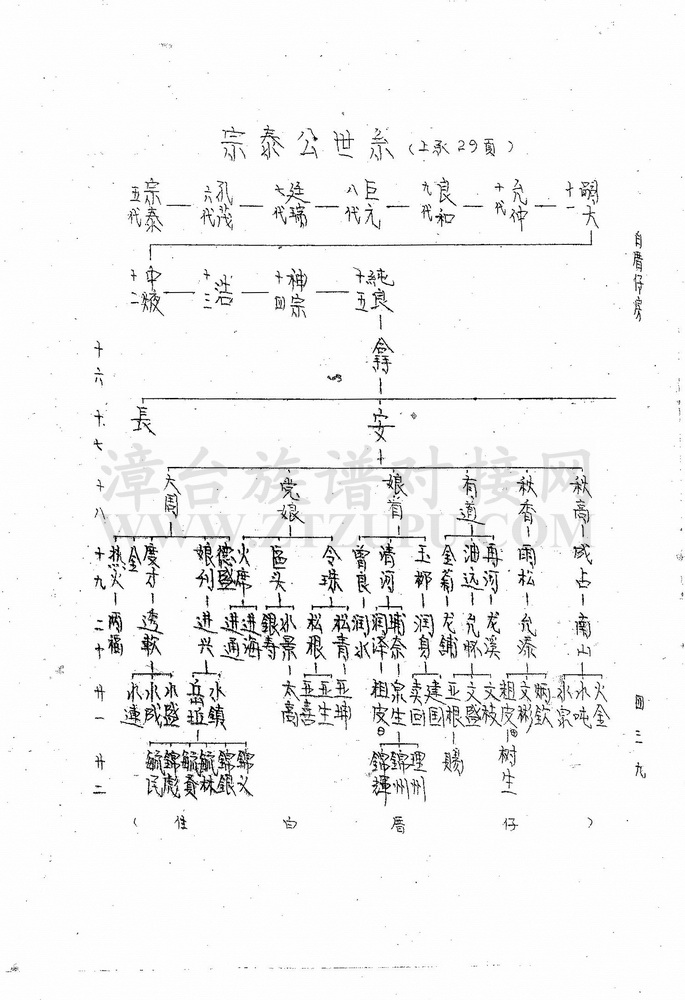 宗泰公世系(上承29頁)
五代 宗泰 六代 孔茂 七代 廷瑞 八代 巨元 九代 良和 十代 允仲 十一 嗣大
十二 十三 浩 十四 神宗 十五 純良
白厝仔房
十六
十七 長 安
十八 大周 党娘 娘首 有道 秋香 秋高
十九 热火 金 度才 娘列 德盛 火席 區头 令珠 曾良 清河 玉柳 金菊 油远 再河 雨松 成占
二十 两福 透軟 进兴 进通 进海 銀寿 水景 松根 松青 润水 润泽 润身 龙舖 允怀 龙溪 允添 南山
廿一 水連 水成 水盛 水鎮 太高 亚喜 亚生 亚坤 祖皮 泉生 卖回 建国 亚根 文盛 文枝 祖皮 文彬 炳欽 水泉 水吨 火金
廿二 毓民 錦彪 毓貴 毓林 錦銀 錦义 錦輝 錦州 理州 賜 树生
(住白厝仔)
四三九
漳台族谱对接网
WWW.ZTZUPU.COM